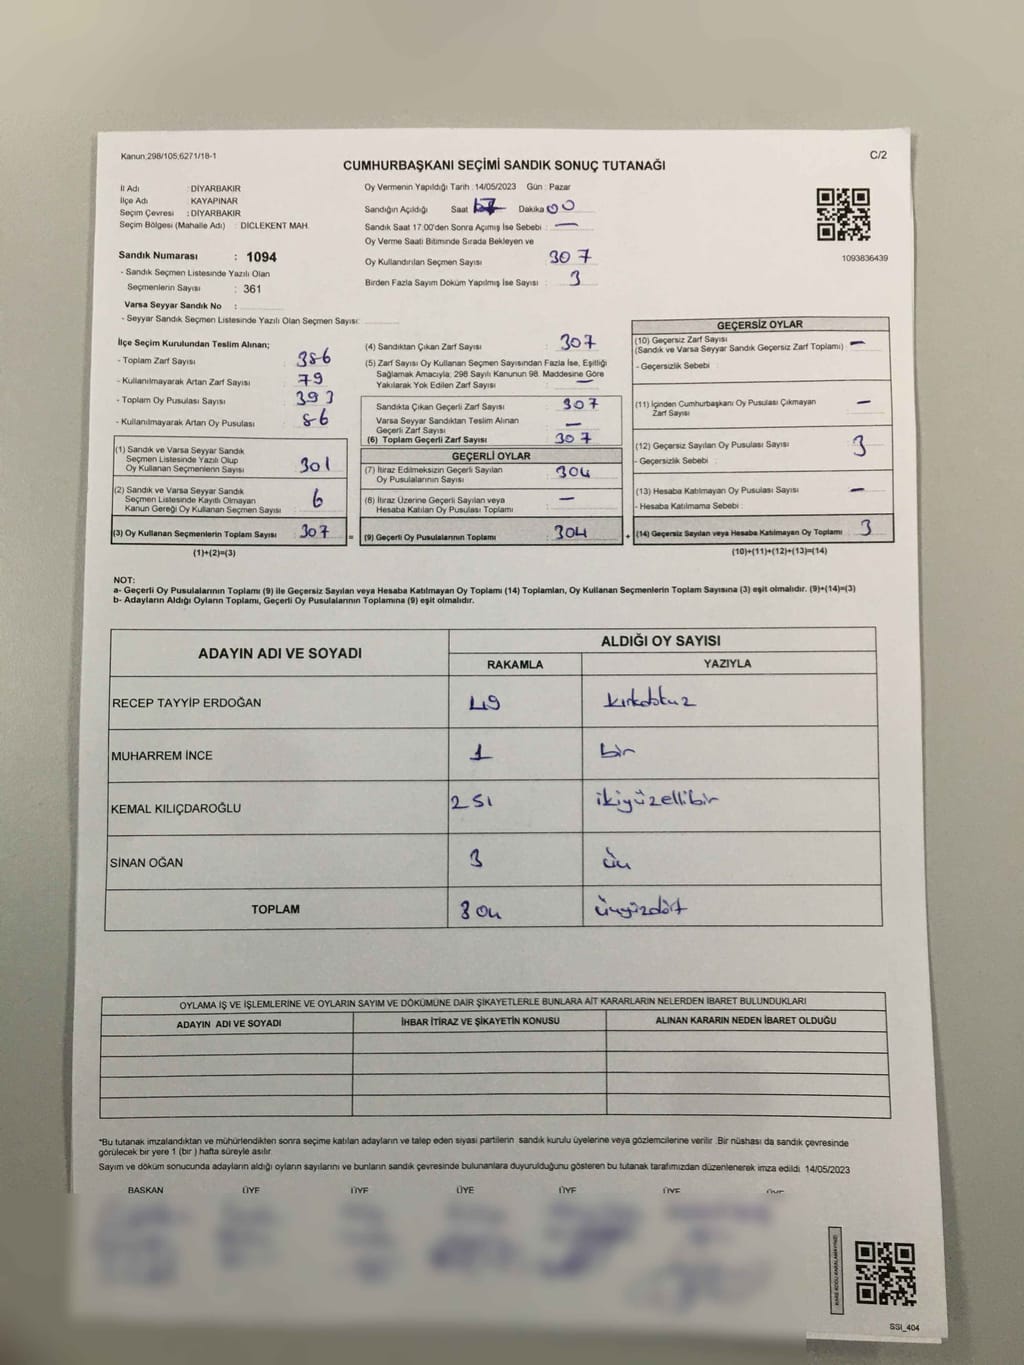 Kanun,298/105;6271/18-1
C/2
CUMHURBAŞKANI SEÇİMİ SANDIK SONUÇ TUTANAĞI
İl Adı : DİYARBAKIR
İlçe Adı : KAYAPINAR
Seçim Çevresi : DİYARBAKIR
Seçim Bölgesi (Mahalle Adı) : DİCLEKENT MAH.
Sandık Numarası : 1094
- Sandık Seçmen Listesinde Yazılı Olan
Seçmenlerin Sayısı : 361
Varsa Seyyar Sandık No :
- Seyyar Sandık Seçmen Listesinde Yazılı Olan Seçmen Sayısı:
Oy Vermenin Yapıldığı Tarih : 14/05/2023 Gün : Pazar
Sandığın Açıldığı Saat Dakika 00
Sandık Saat 17.00'den Sonra Açımış İse Sebebi : —
Oy Verme Saati Bitiminde Sırada Bekleyen ve
Oy Kullandırılan Seçmen Sayısı 307
Birden Fazla Sayım Döküm Yapılmış İse Sayısı : 3
1093836439
İlçe Seçim Kurulundan Teslim Alınan;
- Toplam Zarf Sayısı : 386
- Kullanılmayarak Artan Zarf Sayısı : 79
- Toplam Oy Pusulası Sayısı : 393
- Kullanılmayarak Artan Oy Pusulası : 86
(1) Sandık ve Varsa Seyyar Sandık
Seçmen Listesinde Yazılı Olup
Oy Kullanan Seçmenlerin Sayısı : 301
(2) Sandık ve Varsa Seyyar Sandık
Seçmen Listesinde Kayıtlı Olmayan
Kanun Gereği Oy Kullanan Seçmen Sayısı : 6
(3) Oy Kullanan Seçmenlerin Toplam Sayısı : 307
(1)+(2)=(3)
(4) Sandıktan Çıkan Zarf Sayısı : 307
(5) Zarf Sayısı Oy Kullanan Seçmen Sayısından Fazla İse, Eşitliği
Sağlamak Amacıyla; 298 Sayılı Kanunun 98. Maddesine Göre
Yakılarak Yok Edilen Zarf Sayısı : —
Sandıkta Çıkan Geçerli Zarf Sayısı : 307
Varsa Seyyar Sandıktan Teslim Alınan
Geçerli Zarf Sayısı : —
(6) Toplam Geçerli Zarf Sayısı : 307
GEÇERLİ OYLAR
(7) İtiraz Edilmeksizin Geçerli Sayılan
Oy Pusulalarının Sayısı : 304
(8) İtiraz Üzerine Geçerli Sayılan veya
Hesaba Katılan Oy Pusulası Toplamı : —
= (9) Geçerli Oy Pusulalarının Toplamı : 304
GEÇERSİZ OYLAR
(10) Geçersiz Zarf Sayısı
(Sandık ve Varsa Seyyar Sandık Geçersiz Zarf Toplamı) : —
- Geçersizlik Sebebi :
(11) İçinden Cumhurbaşkanı Oy Pusulası Çıkmayan
Zarf Sayısı : —
(12) Geçersiz Sayılan Oy Pusulası Sayısı : 3
- Geçersizlik Sebebi :
(13) Hesaba Katılmayan Oy Pusulası Sayısı : —
- Hesaba Katılmama Sebebi :
+ (14) Geçersiz Sayılan veya Hesaba Katılmayan Oy Toplamı : 3
(10)+(11)+(12)+(13)=(14)
NOT:
a- Geçerli Oy Pusulalarının Toplamı (9) ile Geçersiz Sayılan veya Hesaba Katılmayan Oy Toplamı (14) Toplamları, Oy Kullanan Seçmenlerin Toplam Sayısına (3) eşit olmalıdır. (9)+(14)=(3)
b- Adayların Aldığı Oyların Toplamı, Geçerli Oy Pusulalarının Toplamına (9) eşit olmalıdır.
ADAYIN ADI VE SOYADI
ALDIĞI OY SAYISI
RAKAMLA YAZIYLA
RECEP TAYYİP ERDOĞAN 49 kırkdokuz
MUHARREM İNCE 1 bir
KEMAL KILIÇDAROĞLU 251 ikiyüzellibir
SİNAN OĞAN 3 üç
TOPLAM 304 üçyüzdört
OYLAMA İŞ VE İŞLEMLERİNE VE OYLARIN SAYIM VE DÖKÜMÜNE DAİR ŞİKAYETLERLE BUNLARA AİT KARARLARIN NELERDEN İBARET BULUNDUKLARI
ADAYIN ADI VE SOYADI İHBAR İTİRAZ VE ŞİKAYETİN KONUSU ALINAN KARARIN NEDEN İBARET OLDUĞU
*Bu tutanak imzalandıktan ve mühürlendikten sonra seçime katılan adayların ve talep eden siyasi partilerin sandık kurulu üyelerine veya gözlemcilerine verilir .Bir nüshası da sandık çevresinde
görülecek bir yere 1 (bir ) hafta süreyle asılır.
Sayım ve döküm sonucunda adayların aldığı oyların sayılarını ve bunların sandık çevresinde bulunanlara duyurulduğunu gösteren bu tutanak tarafımızdan düzenlenerek imza edildi. 14/05/2023
BAŞKAN ÜYE ÜYE ÜYE ÜYE ÜYE ÜYE
KARE KODU KARALAMAYINIZ!
SSI_404